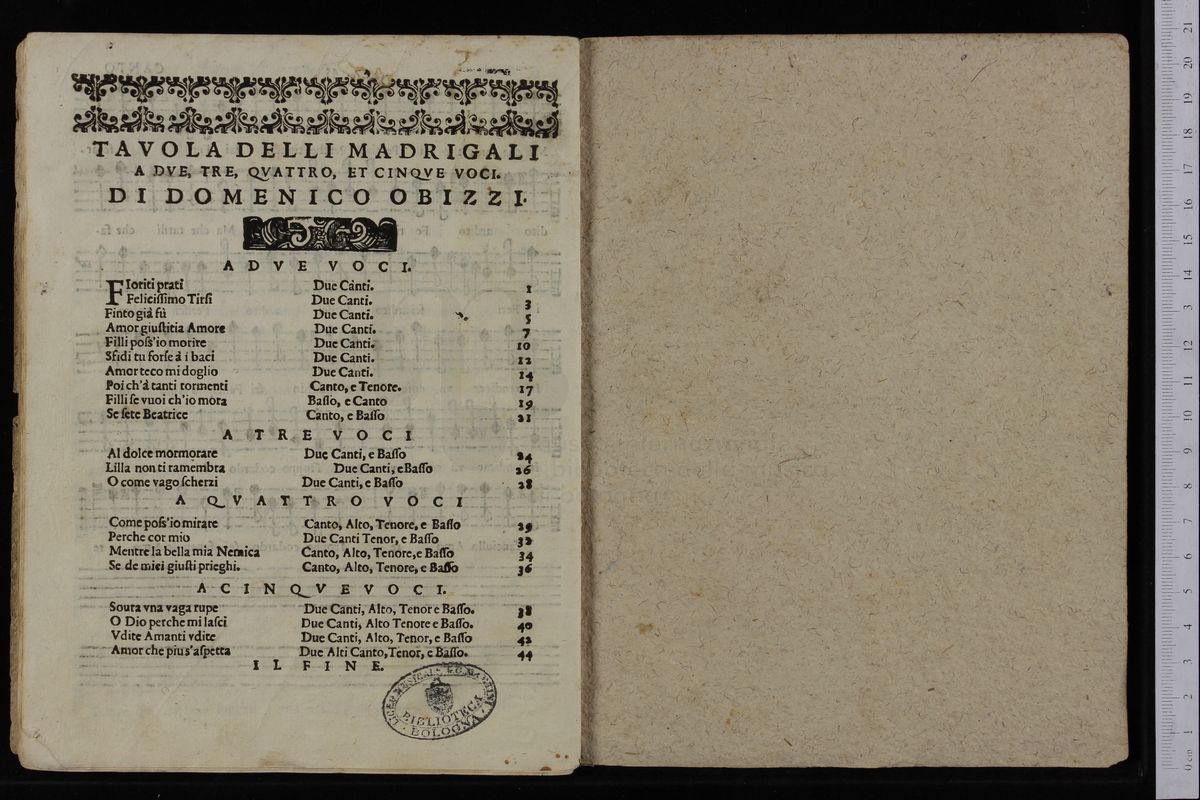 TAVOLA DELLI MADRIGALI
A DVE, TRE, QVATTRO, ET CINQVE VOCI.
DI DOMENICO OBIZZI.
A DVE VOCI.
FIoriti prati Due Canti. 1
Feliciſſimo Tirſi Due Canti. 3
Finto già fù Due Canti. 5
Amor giuſtitia Amore Due Canti. 7
Filli poſs'io morire Due Canti. 10
Sfidi tu forſe à i baci Due Canti. 12
Amor teco mi doglio Due Canti. 14
Poi ch'à tanti tormenti Canto, e Tenore. 17
Filli ſe vuoi ch'io mora Baſſo, e Canto 19
Se ſete Beatrice Canto, e Baſſo 21
A TRE VOCI
Al dolce mormorare Due Canti, e Baſſo 24
Lilla non ti ramembra Due Canti, e Baſſo 26
O come vago ſcherzi Due Canti, e Baſſo 28
A QVATTRO VOCI
Come poſs'io mirare Canto, Alto, Tenore, e Baſſo 29
Perche cor mio Due Canti Tenor, e Baſſo 32
Mentre la bella mia Nemica Canto, Alto, Tenore, e Baſſo 34
Se de miei giuſti prieghi. Canto, Alto, Tenore, e Baſſo 36
A CINQVE VOCI.
Soura vna vaga rupe Due Canti, Alto, Tenor e Baſſo. 38
O Dio perche mi laſci Due Canti, Alto Tenore e Baſſo. 40
Vdite Amanti vdite Due Canti, Alto, Tenor, e Baſſo 42
Amor che piu s'aſpetta Due Alti Canto, Tenor, e Baſſo. 44
IL FINE.
BIBLIOTECA
BOLOGNA